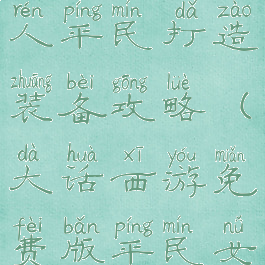 rén píng mín dǎ zào
人平民打造
zhuāng bèi gōng lüè
装备攻略（
dà huà xī yóu miǎn
大话西游免
fèi bǎn píng mín nǚ
费版平民女